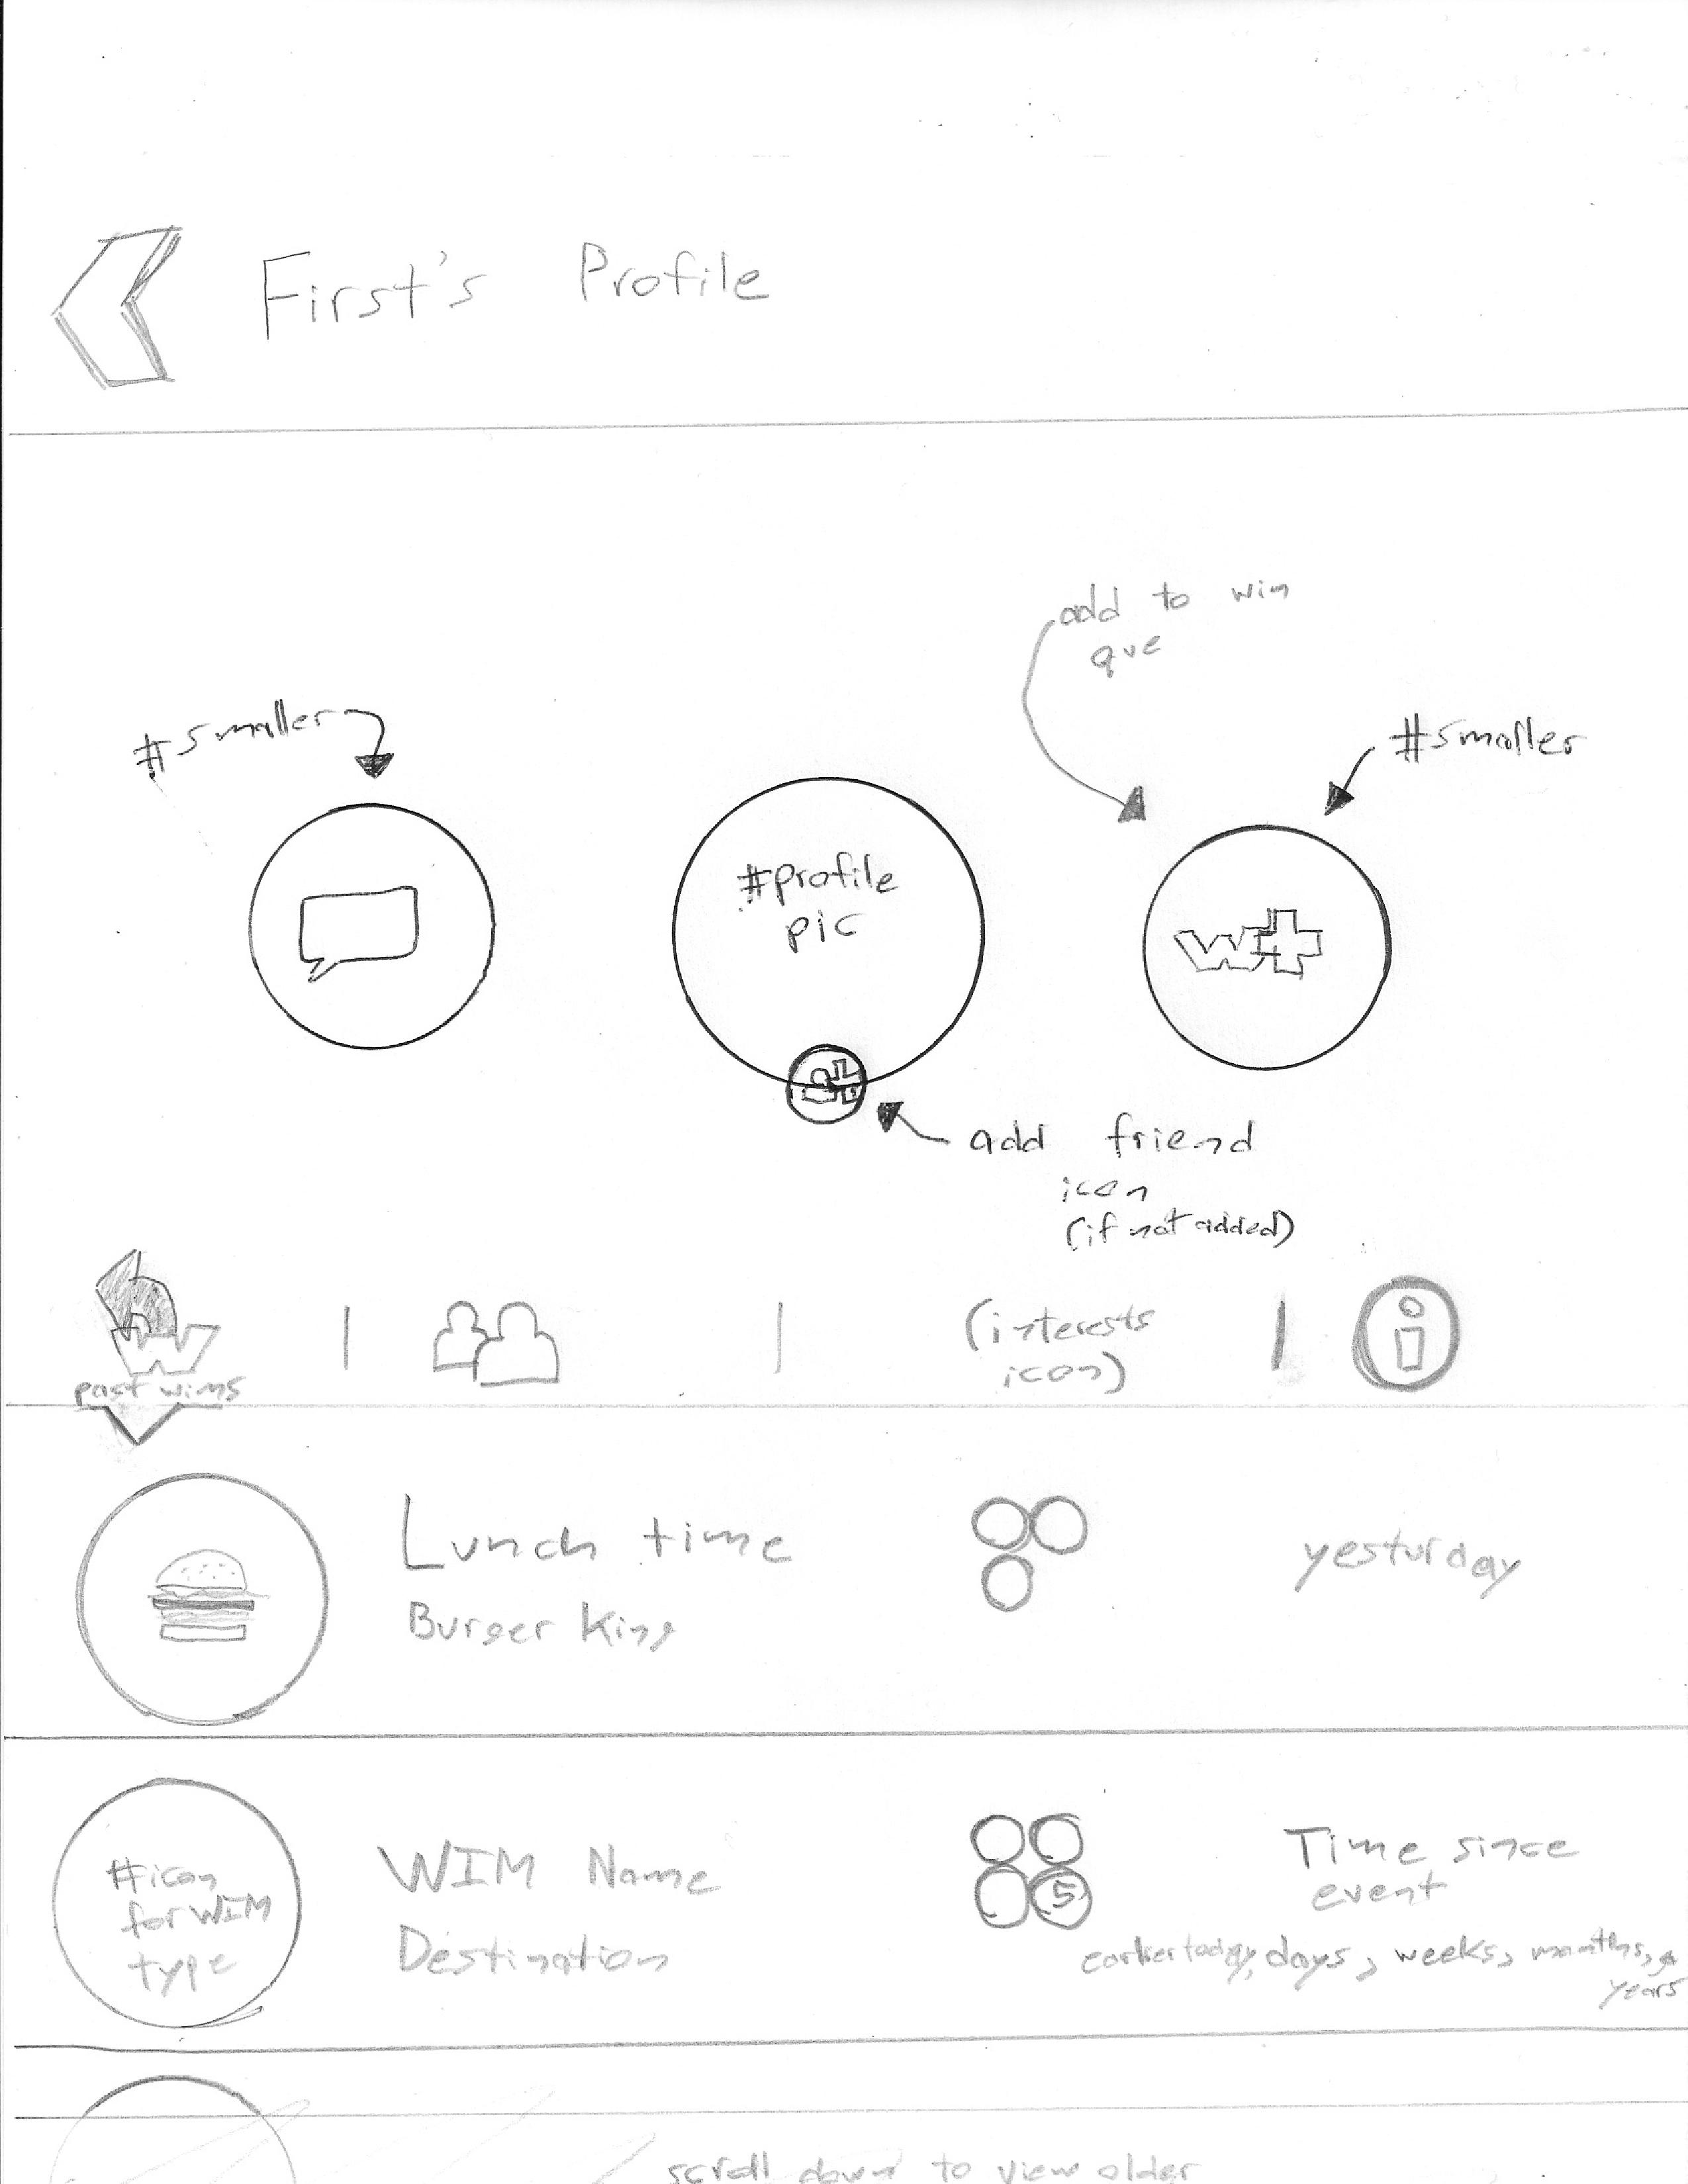 First's Profile
add to wim
que
#smaller
#smaller
#profile
pic
W+
add friend
icon
(if not added)
(interests
icon)
i
W
past wims
Lunch time
Burger King
yesturday
#icon
for WIM
type
WIM Name
Destination
5
Time since
event
earlier today, days, weeks, months, &
years
scroll down to view older